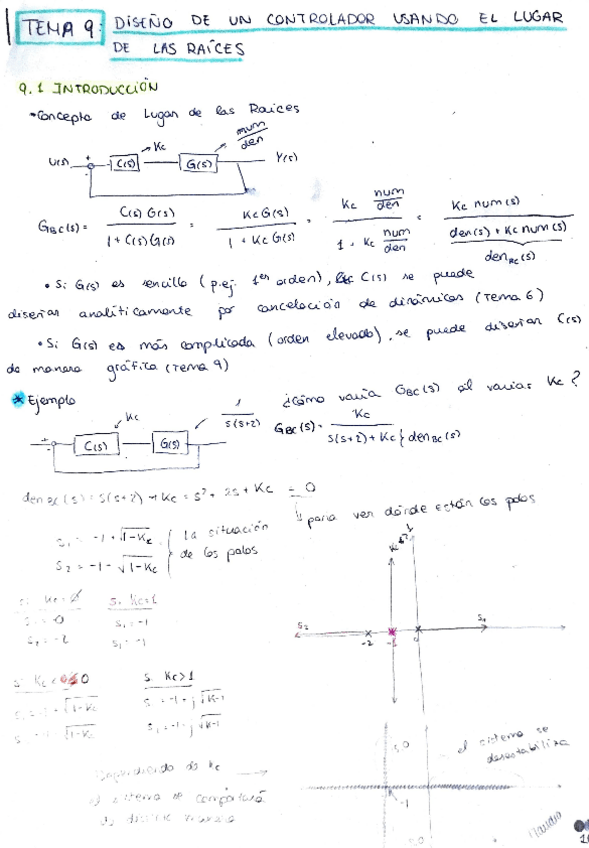 TEMA 9: DISEÑO DE UN CONTROLADOR USANDO EL LUGAR
DE LAS RAÍCES
9.1 INTRODUCCIÓN
Concepto de Lugar de las Raíces
Kc
num
den
U(s) + - C(s) G(s) Y(s)
G_BC(s) = C(s) G(s) / 1 + C(s) G(s) = Kc G(s) / 1 + Kc G(s) = Kc num/den / 1 + Kc num/den = Kc num(s) / den(s) + Kc num(s)
den_BC(s)
• Si G(s) es sencillo (p.ej. 1er orden), C(s) se puede
diseñar analíticamente por cancelación de dinámicas (Tema 6)
• Si G(s) es más complicada (orden elevado), se puede diseñar C(s)
de manera gráfica (Tema 9)
* Ejemplo
¿Cómo varía G_BC(s) al variar Kc?
Kc
1 / s(s+2)
+ - C(s) G(s)
G_BC(s) = Kc / s(s+2) + Kc } den_BC(s)
den_BC(s) = s(s+2) + Kc = s² + 2s + Kc = 0
para ver dónde están los polos
s1 = -1 + √1-Kc
s2 = -1 - √1-Kc
La situación
de los polos
si Kc = 0
s1 = 0
s2 = -2
si Kc=1
s1 = -1
s1 = -1
s2
s1
-2 -1
si Kc < 0
√1-Kc
√1-Kc
si Kc > 1
s = -1 + j √K-1
s1 = -1 - j √K-1
el sistema se
desestabiliza
-1
Dependiendo de Kc
el sistema se comportará
de distinta manera